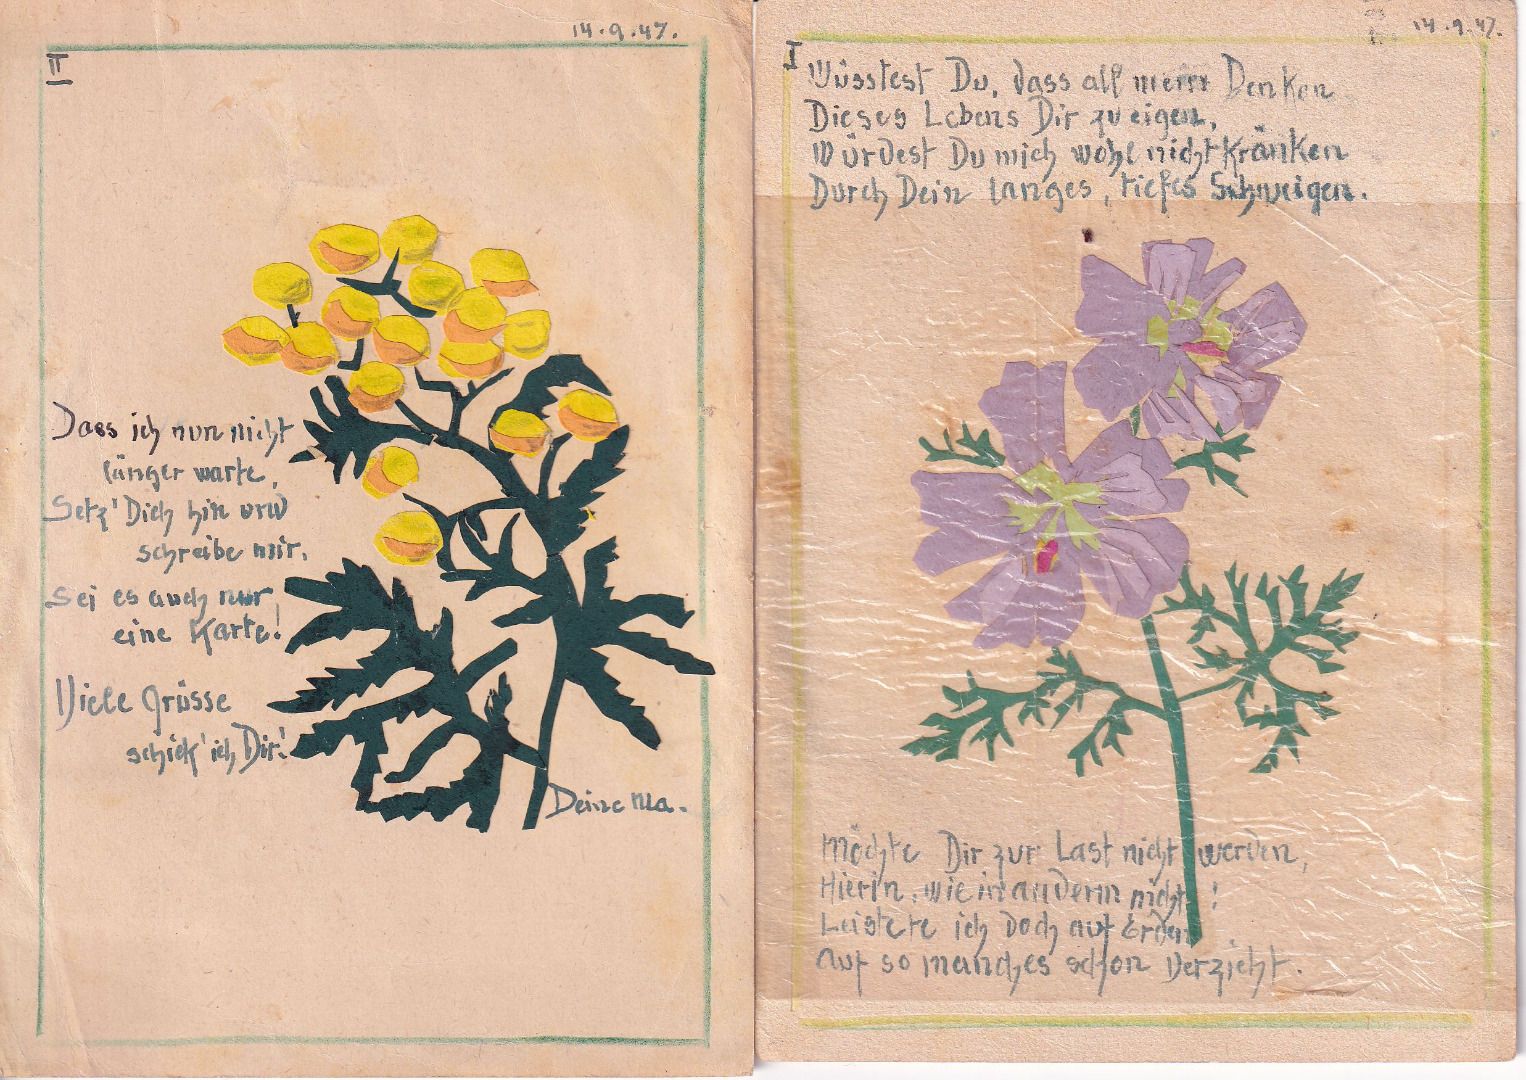 14.9.47.
II
Dass ich nun nicht
länger warte,
Setz' Dich hin und
schreibe mir,
Sei es auch nur,
eine Karte!
Viele Grüsse
schick' ich Dir!
Deine Ma.
14.9.47.
I
Wüsstest Du, dass all mein Denken
Dieses Lebens Dir zu eigen,
Würdest Du mich wohl nicht kränken
Durch Dein langes, tiefes Schweigen.
Möchte Dir zur Last nicht werden,
Hierin, wie in anderm nicht!
Leistete ich doch auf Erden
Auf so manches schon Verzicht.